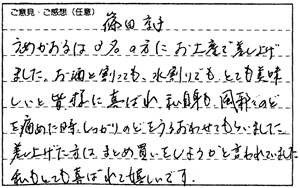 ご意見・ご感想（任意）
篠田 様
の方にお土産で差し上げ
ました。お酒と割っても、水割りでも、とても美味
しいと皆様に喜ばれ、私自身も、風邪でのど
を痛めた時、しっかりのどをうるおわせてもらいました
差し上げた方はまとめ買いをしようかと言われていました
私もとても喜ばれて嬉しいです。